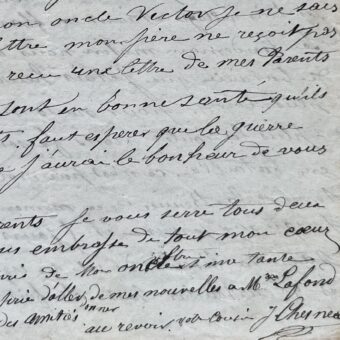 mon oncle Victor je ne sais
lettre mon père ne reçoit pas
recu une lettre de mes Parents
sont en bonne santé qu'ils
faut esperer que la guerre
j'aurai le bonheur de vous
je vous serre tous deux
embrasse de tout mon coeur
de mon oncle et ma tante
d'aller de mes nouvelles a Mme Lafond
des amitiés
au revoir votre Cousin J